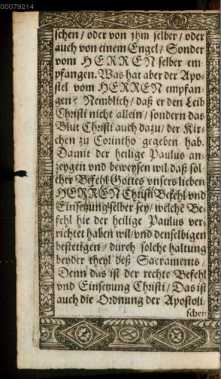 00079214
schen / oder von jhm selber / oder
auch von einem Engel / Sonder
vom HERREN selber em
pfangen. Was hat aber der Apo-
stel vom HERREN empfan-
gen? Nemblich / daß er den Leib
Christi nicht allein / sondern das
Blut Christi auch dazu / der Kir-
chen zu Corintho gegeben hab.
Damit der heilige Paulus an-
zeygen vnd beweysen wil daß sol-
cher Befehl Gottes vnsers lieben
HERREN Christi Befehl vnd
Einsetzung selber sey / welche Be-
fehl hie der heilige Paulus ver-
richtet haben wil / vnd denselbigen
bestettigen / durch solche haltung
beyder theyl deß Sacraments /
Denn das ist der rechte Befehl
vnd Einsetzung Christi / Das ist
auch die Ordnung der Apostoli-
schen